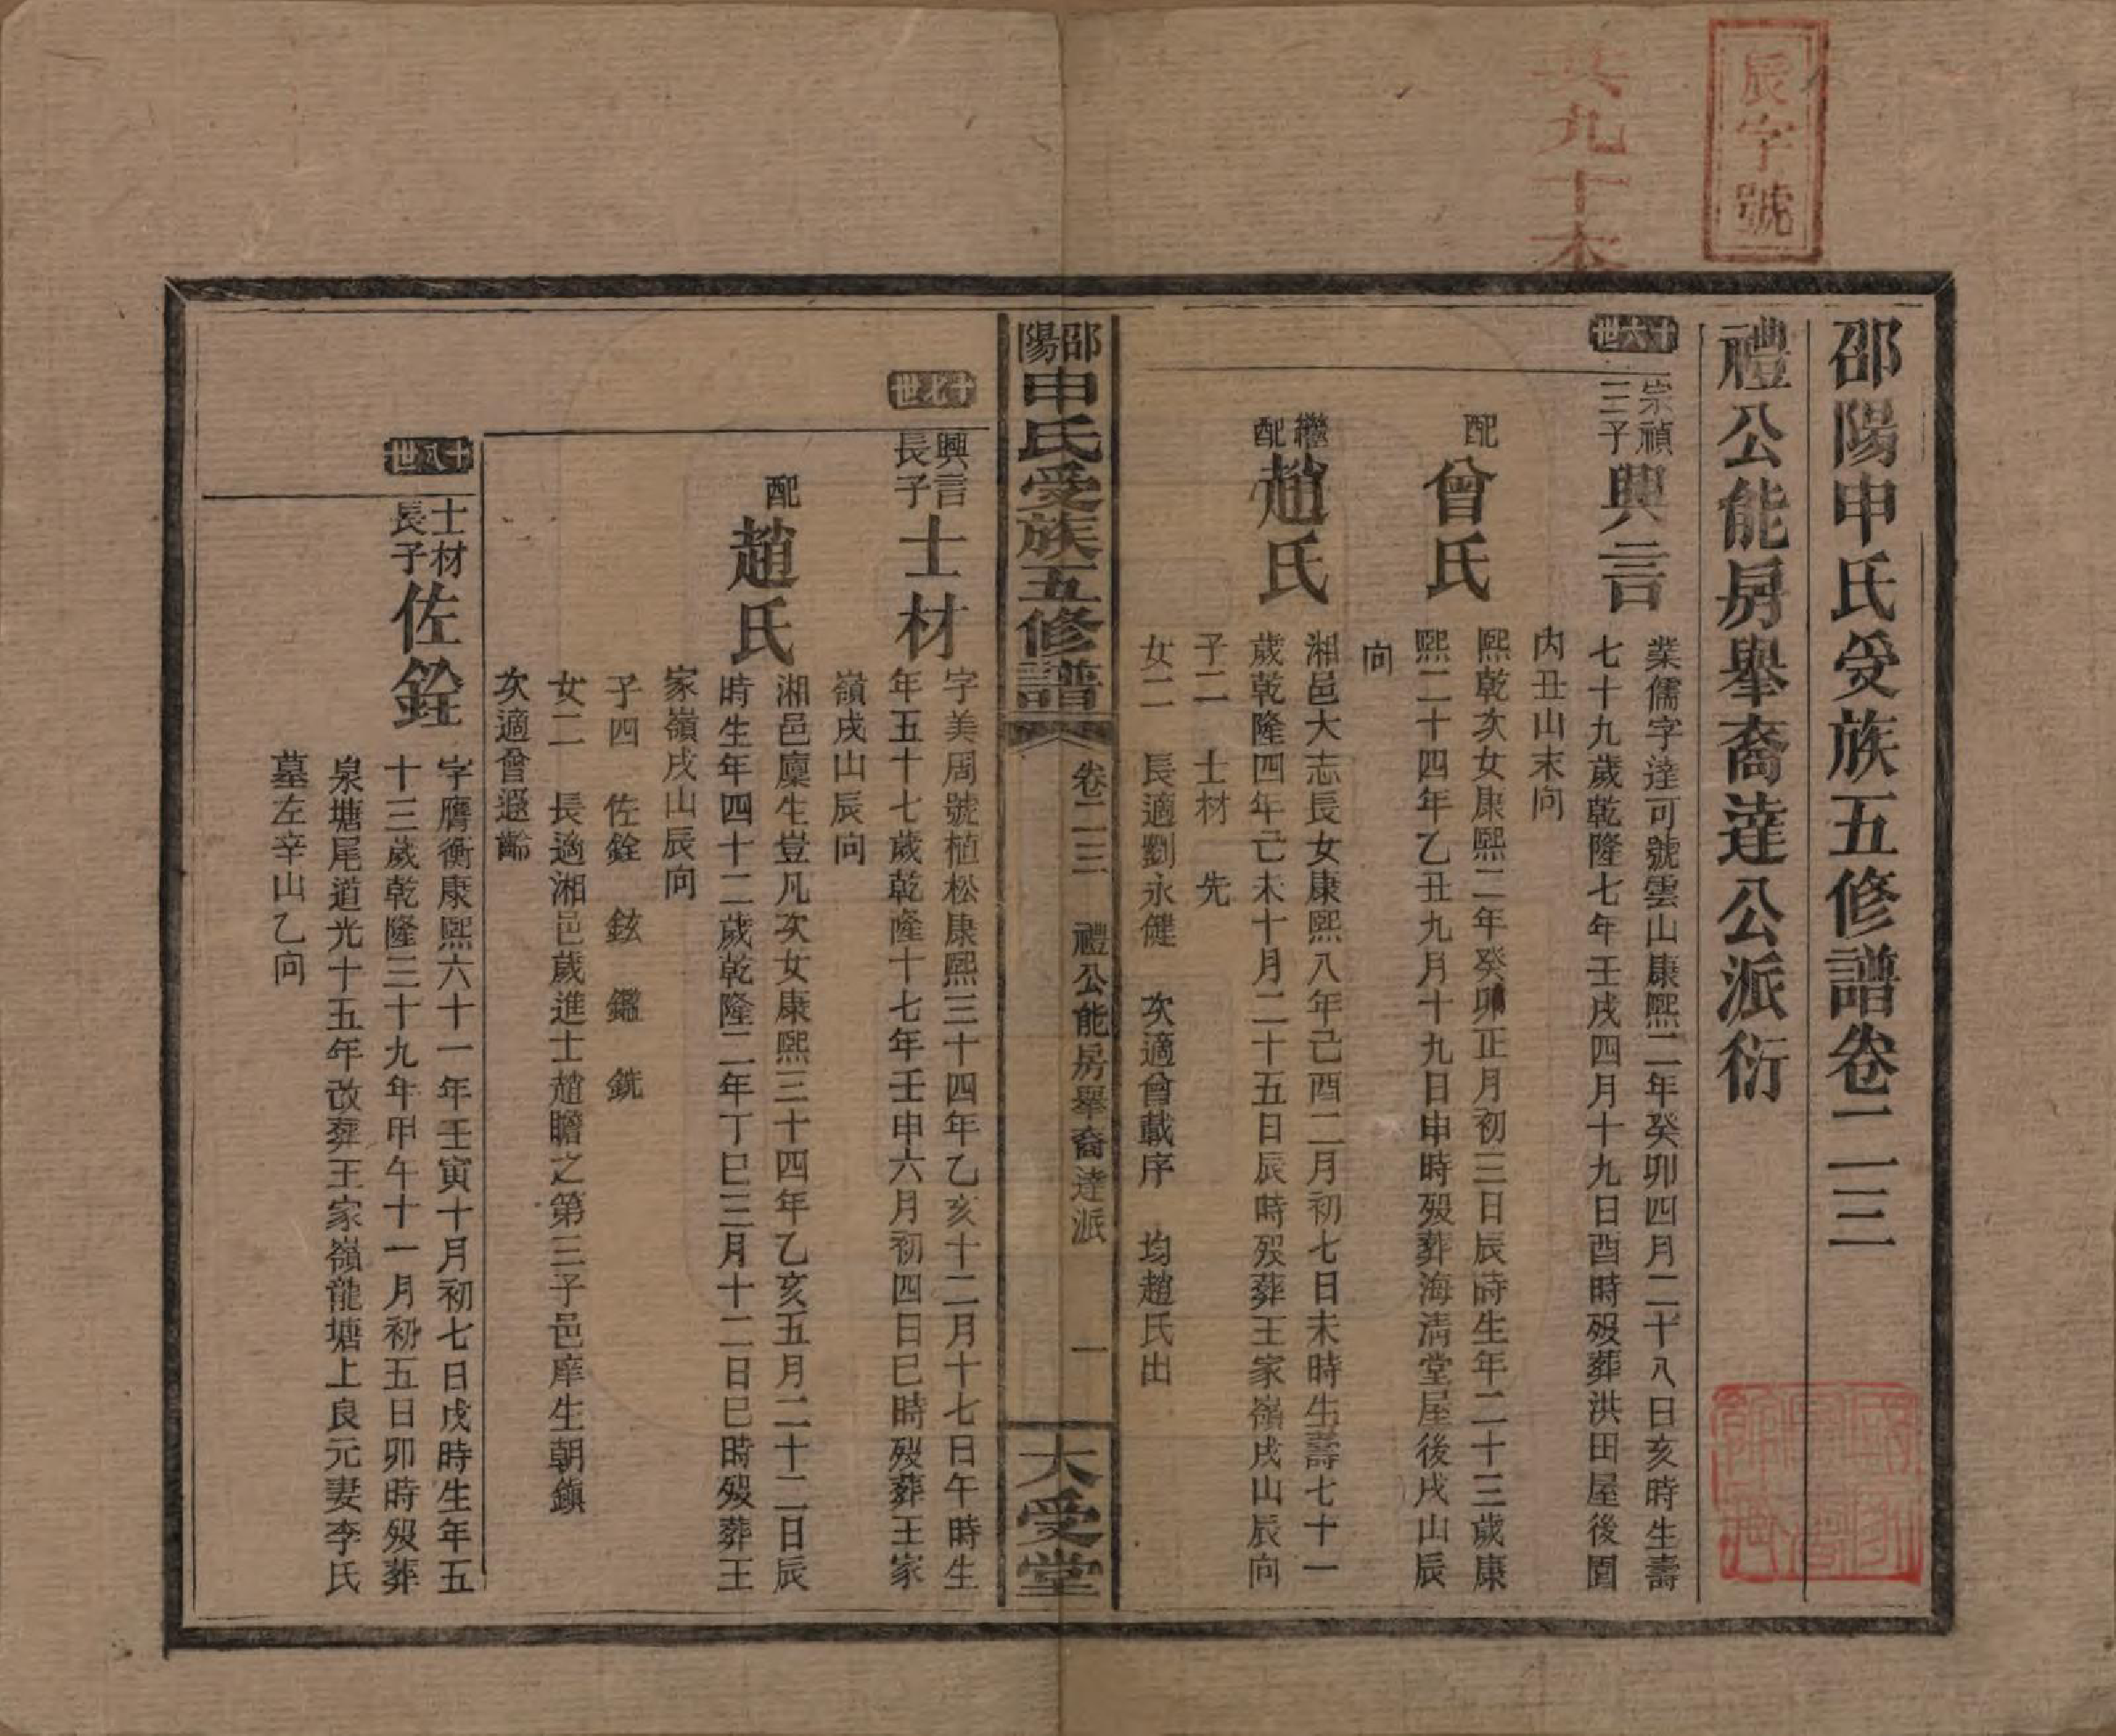 辰字號
共九十本
邵陽申氏受族五修譜卷二三
禮公能房舉裔達公派衍
十六世
崇禎
三子
興言
業儒字達可號雲山康熙二年癸卯四月二十八日亥時生壽
七十九歲乾隆七年壬戌四月十九日酉時歿葬洪田屋後園
內丑山未向
配
曾氏
熙乾次女康熙二年癸卯正月初三日辰時生年二十三歲康
熙二十四年乙丑九月十九日申時歿葬海清堂屋後戌山辰
向
繼
配
趙氏
湘邑大志長女康熙八年己酉二月初七日未時生壽七十一
歲乾隆四年己未十月二十五日辰時歿葬王家嶺戌山辰向
子二 士材 先
女二 長適劉永健 次適曾載序 均趙氏出
邵陽申氏受族五修譜
卷二三 禮公能房舉裔達派 一
大受堂
十七世
興言
長子
士材
字美周號植松康熙三十四年乙亥十二月十七日午時生
年五十七歲乾隆十七年壬申六月初四日巳時歿葬王家
嶺戌山辰向
配
趙氏
湘邑廩生豈凡次女康熙三十四年乙亥五月二十二日辰
時生年四十二歲乾隆二年丁巳三月十二日巳時歿葬王
家嶺戌山辰向
子四 佐銓 鉉 鑑 銑
女二 長適湘邑歲進士趙瞻之第三子邑庠生朝鎮
次適曾遐齡
十八世
士材
長子
佐銓
字膺衡康熙六十一年壬寅十月初七日戌時生年五
十三歲乾隆三十九年甲午十一月初五日卯時歿葬
泉塘尾道光十五年改葬王家嶺龍塘上良元妻李氏
墓左辛山乙向